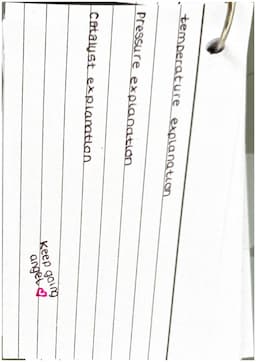 temperature explanation
Pressure explanation
Catalyst explanation
Keep going
angel ♡